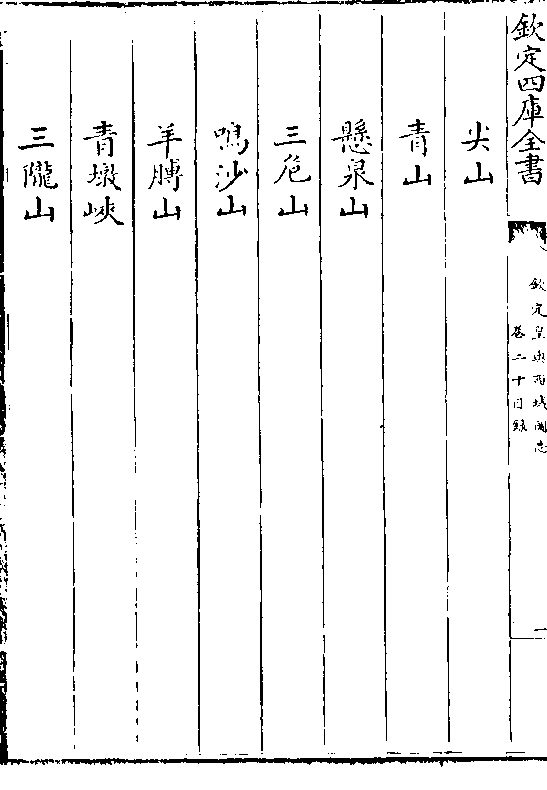 欽定四庫全書
欽定皇輿西域圖志
卷二十目錄
一
尖山
青山
懸泉山
三危山
鳴沙山
羊膊山
青墩峽
三隴山